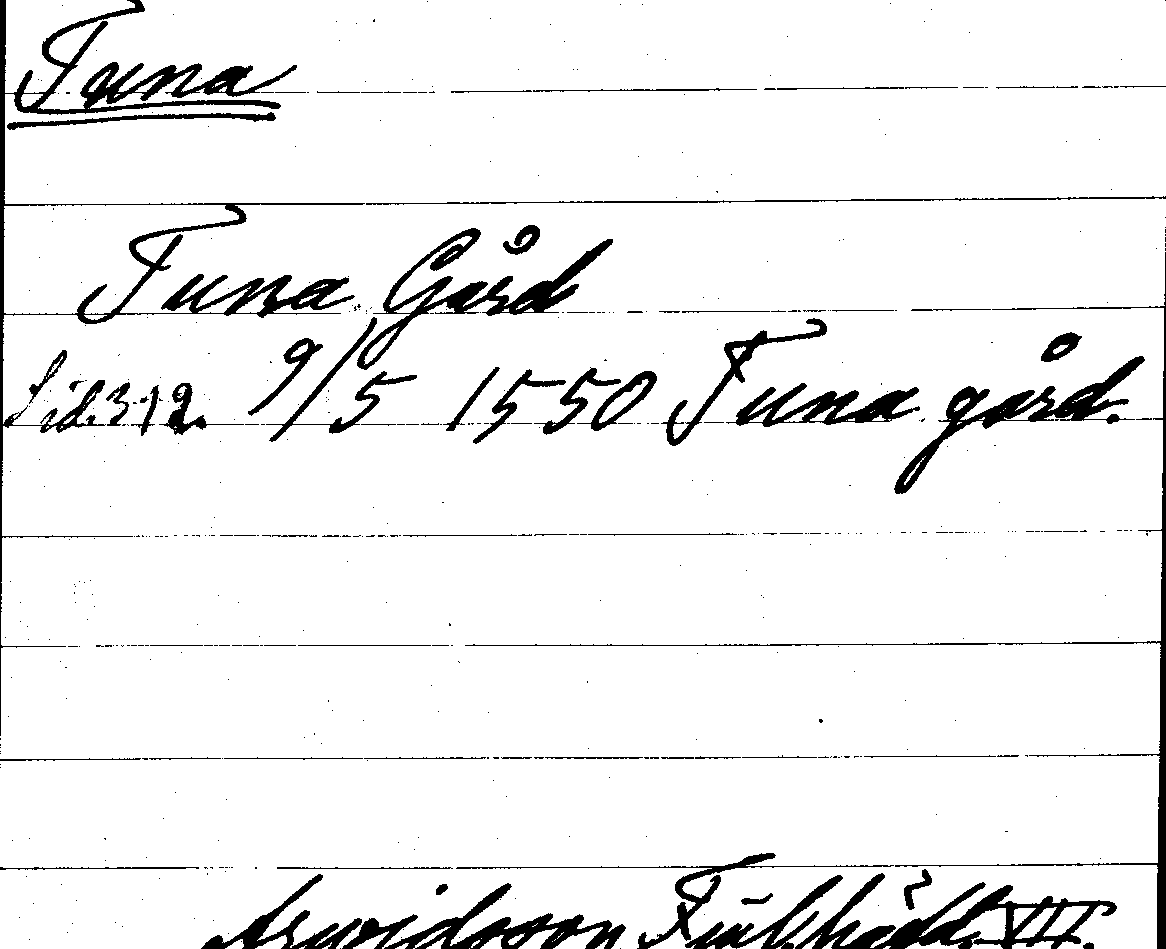 Tuna
Tuna Gård
Sid. 312. 9/5 1550 Tuna gård.
Arwidsson VII.